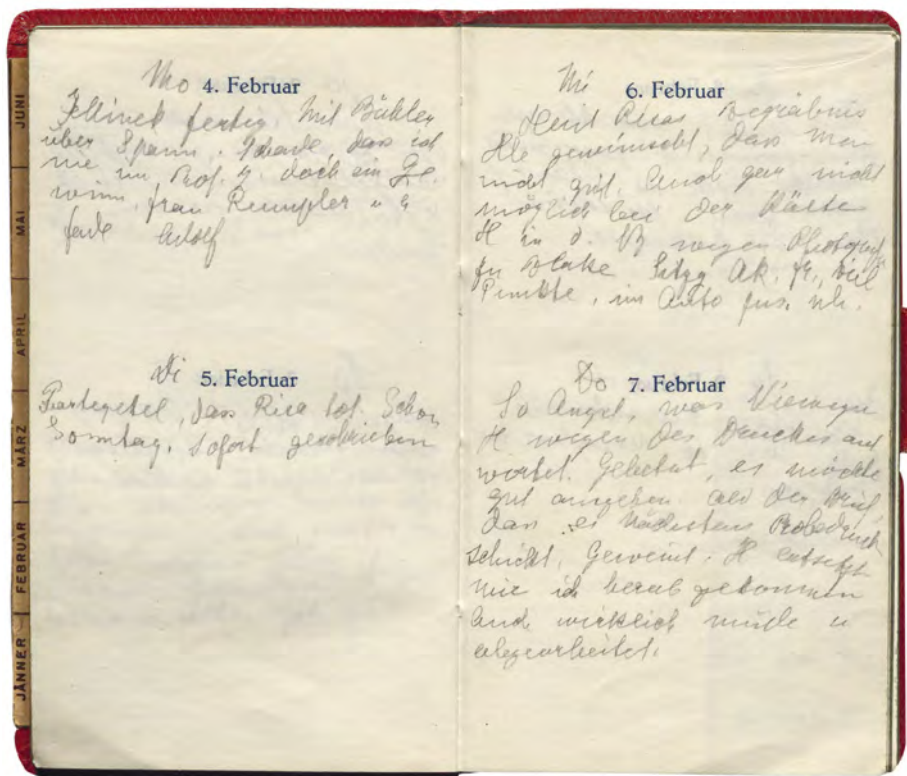 JUNI
MAI
APRIL
MÄRZ
FEBRUAR
JÄNNER
Mo 4. Februar
Jellinek fertig. Mit Bühler
über Spann. Schade dass ich
nie im Prof. Z. doch ein Ge-
winn, frau Rumpler u
Adolf
Di 5. Februar
Partezettel, dass Risa tot. Schon
Sonntag. Sofort geschrieben
Mi 6. Februar
Heut Risas Begräbnis
Alle gewünscht, dass man
nicht geht. Auch gar nicht
möglich bei der Kälte
H in d. wegen Photograf
zu Blake Sitzg Ak. viel
Punkte, im Auto
Do 7. Februar
So Angst, was Vieweger
H wegen des Druckes ant
wortet. Gebetet, es möchte
gut ausgehen. Als der Brief,
dass er nächstens Probedruck
schickt, Geweint. H entsetzt
wie ich herab gekommen
Und wirklich müde u
abgearbeitet.